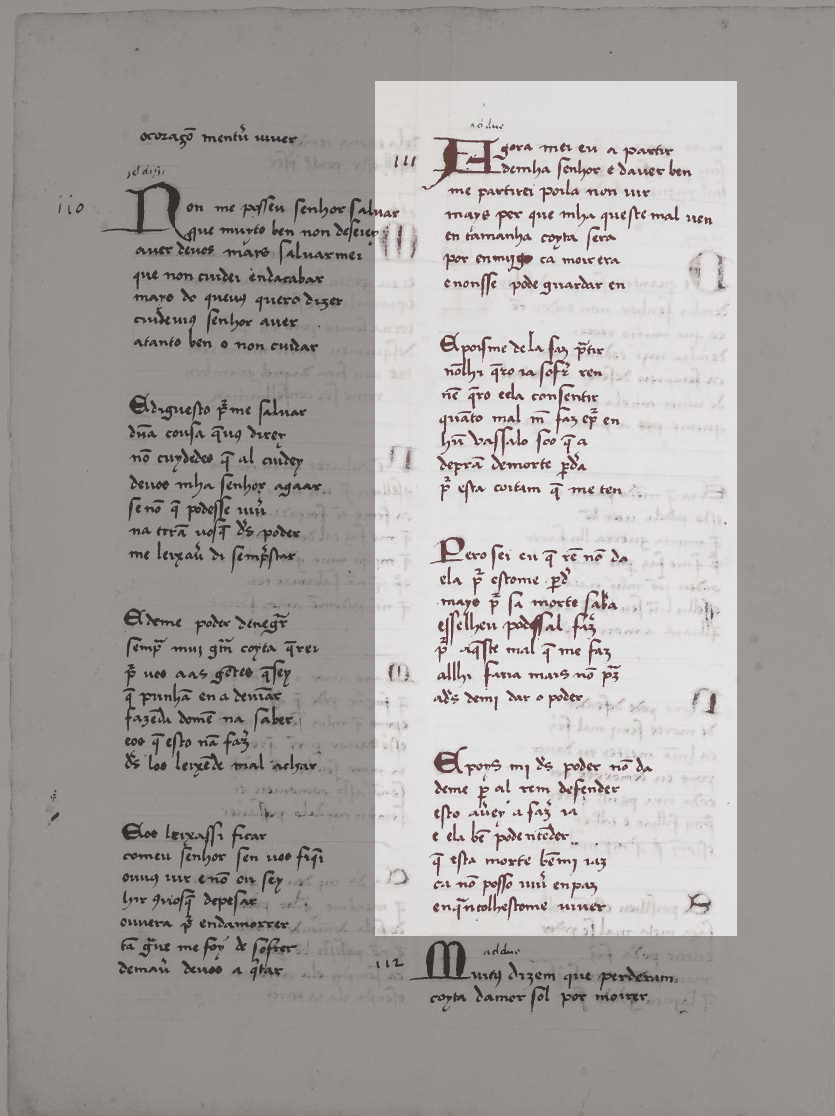 ocoraçõ mentr̃ viver
110
Non me posseu senhor salvar
que muyto ben non desejey
aver devos mays salvarmei
que non cuidei endacabar
mays de quevꝯ quero dizer
cuidevꝯ senhor aver
atanto ben e non cuidar
E diguesto pr̃ me salvar
dũa cousa q̃vꝯ direy
nõ cuydedes q̃ al cuidey
devos mha senhor agaar
se nõ q̃ podesse viv̓
na terrã vosq̃ d̃s poder
me leixav̓ di
E deme poder denegr̃
muj gr̃m coyta q̃rei
pr̃ vos aas gẽtes q̃sey
q̃ punhan en a devinar
fazedu domẽ na saber
eos q̃ esto nã faz̓
d̃s los leixẽde mal achar
E os leixassi ficar
comeu senhor sen vos fiq̃i
ouvꝯ vir e nõ ou sey
depesar
ouvera pr̃ endamorrer
tã gr̃ve me foy de sofrer
demav̓ devos a q̃tar
111
ad due
Agora mei eu a partir
demha senhor e daver ben
me partirei poila non vir
mays per que mha queste mal ven
en tamanha coyta sera
por enmigo ca moirera
enonsse pode guardar en
E poisme dela faz pr̃tir
nõlhi q̃ro ia sofr̃ ren
nẽ q̃ro eela consentir
quãto mal m̃ faz epr̃ en
hũ vassalo soo q̃ a
deprã demorte pd̓a
pr̃ esta coitam q̃ me ten
Pero sei eu q̃ rẽ nõ da
ela pr̃ estome pd̓
mays pr̃ sa morte sab̓a
esselheu podessal faz̓
pr̃ aq̃ste mal q̃ me faz
allhi faria mais nõ pr̃z
ad̃s demi dar o poder
E poys mi d̃s poder nõ da
deme pr̃ al rem defender
esto av̓ey a faz̓ ia
e ela bẽ pode
q̃ esta morte bẽmi iaz
ca nõ posso viv̓ enpaz
enq̃ntolhestome viver
112
ad due
Muitꝯ dizem que perderam
coyta damor sol por moirer